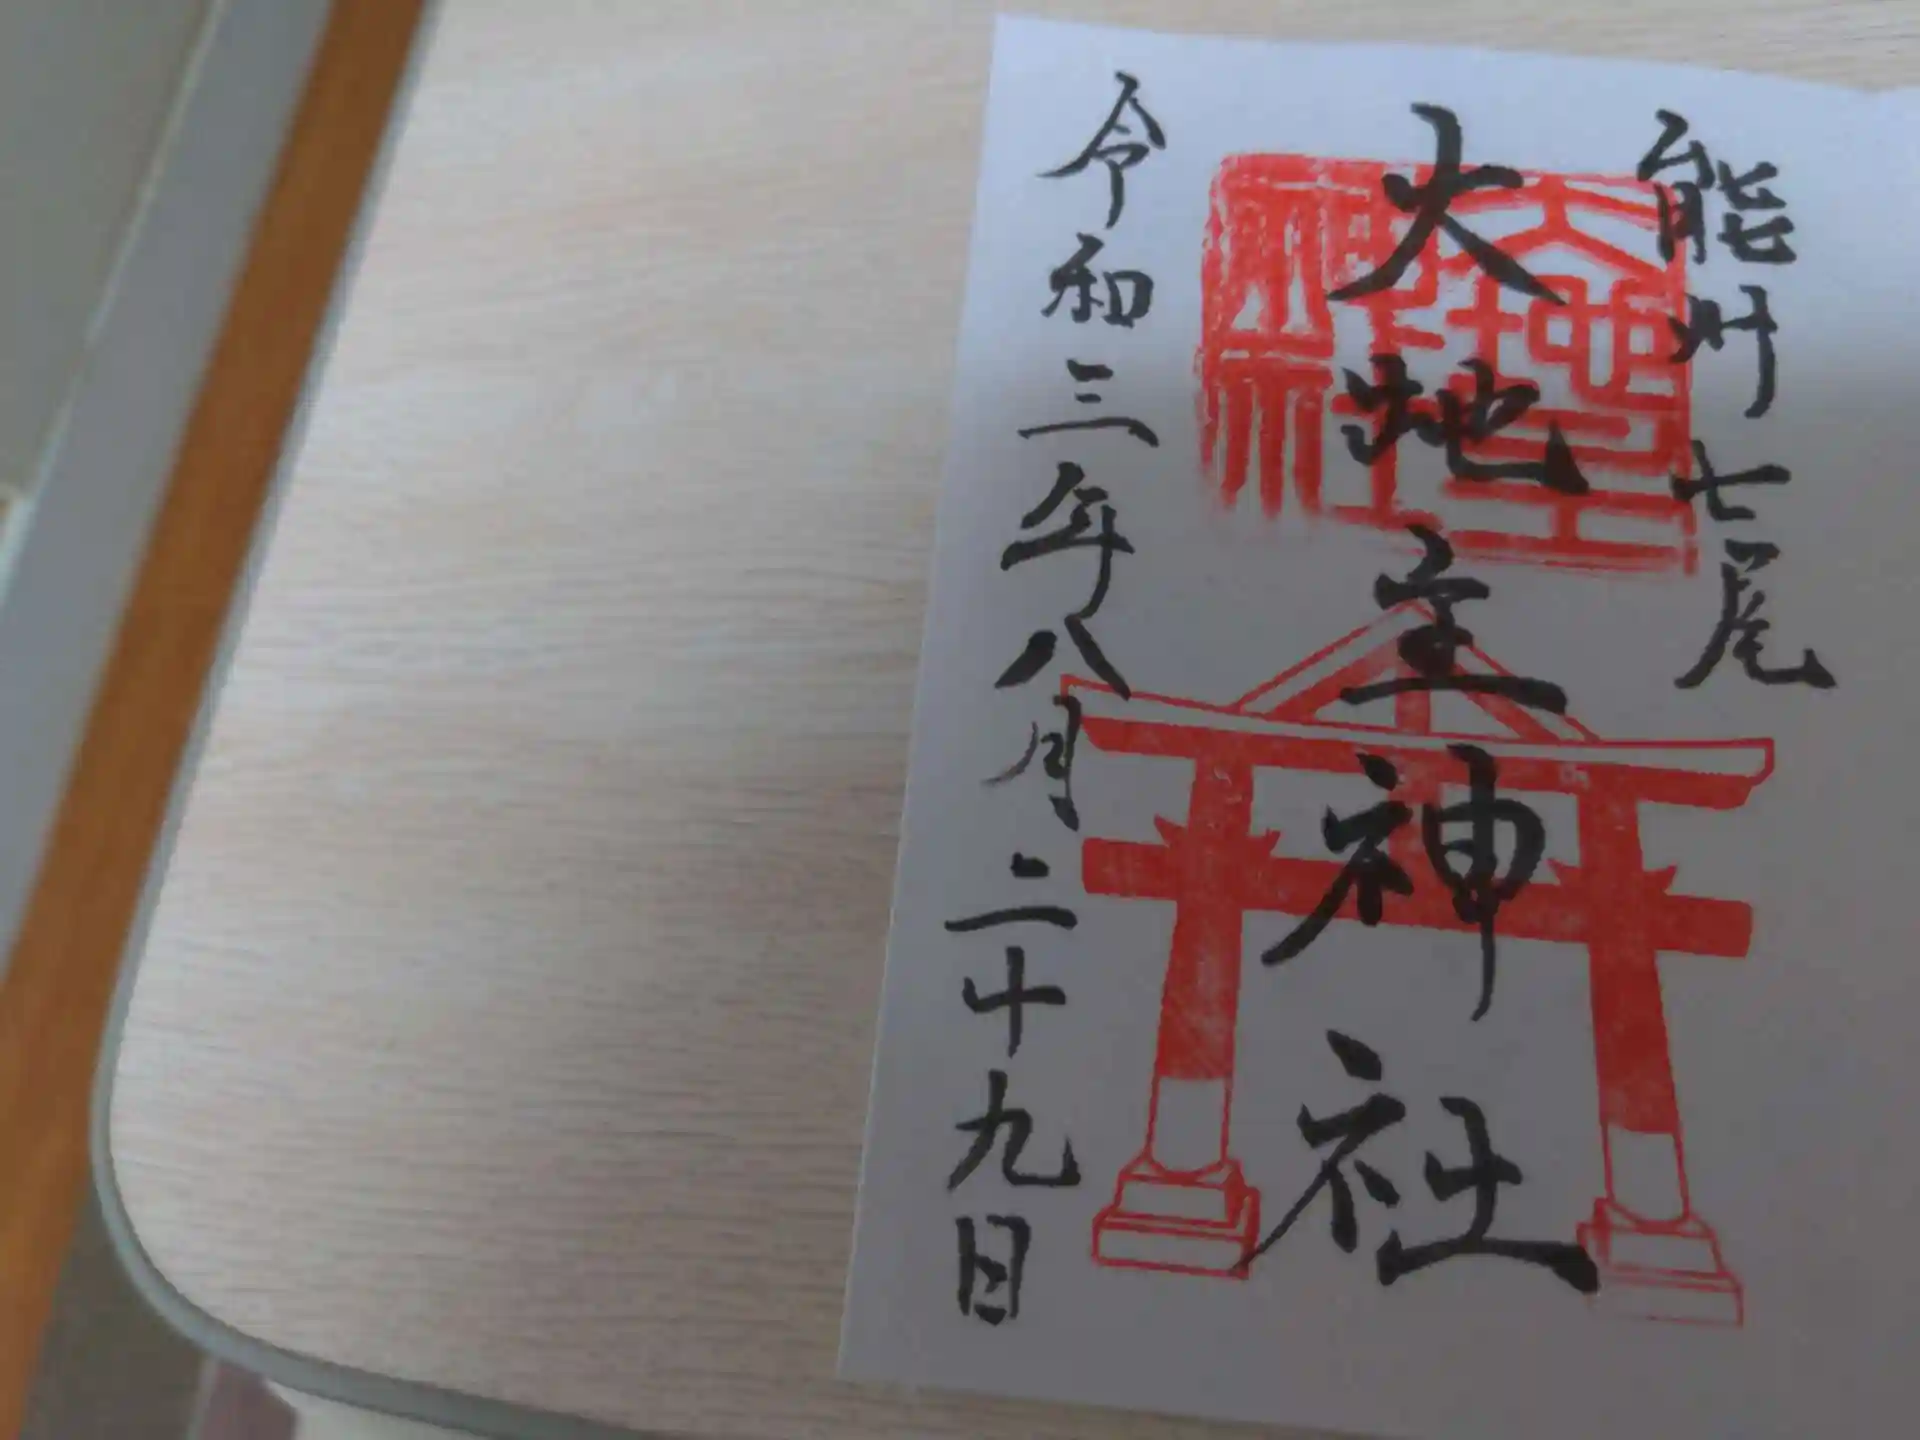 能州七尾
大地主神社
大地主神社
令和三年八月二十九日